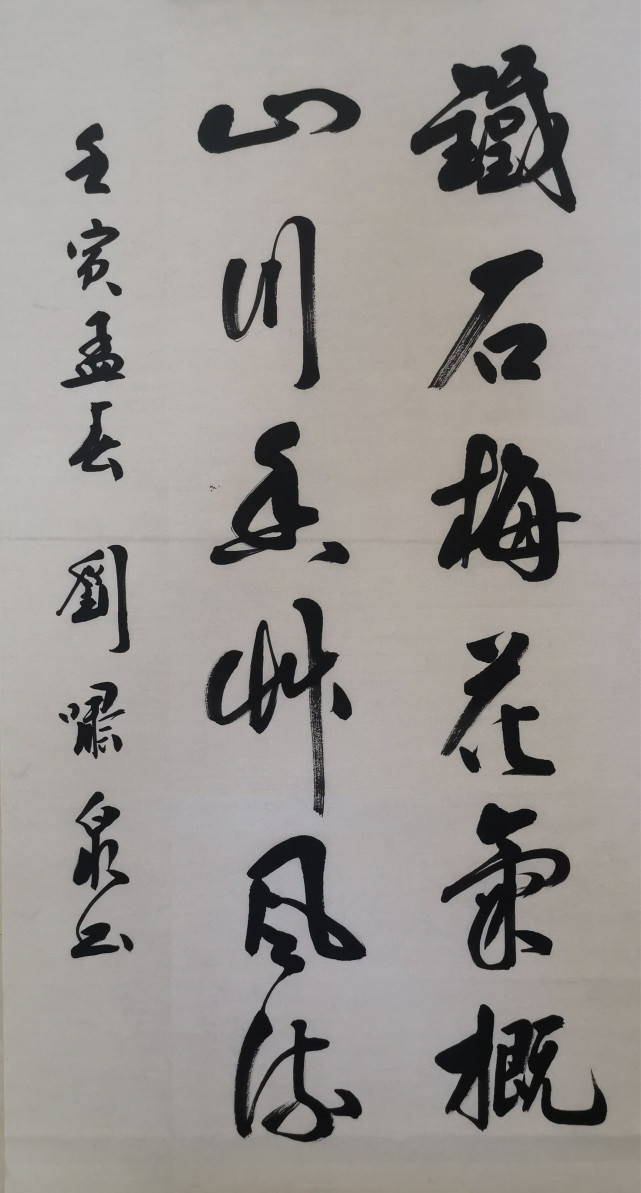 鐵石梅花氣概
山川香艸風流
壬寅孟春 劉嘯泉书